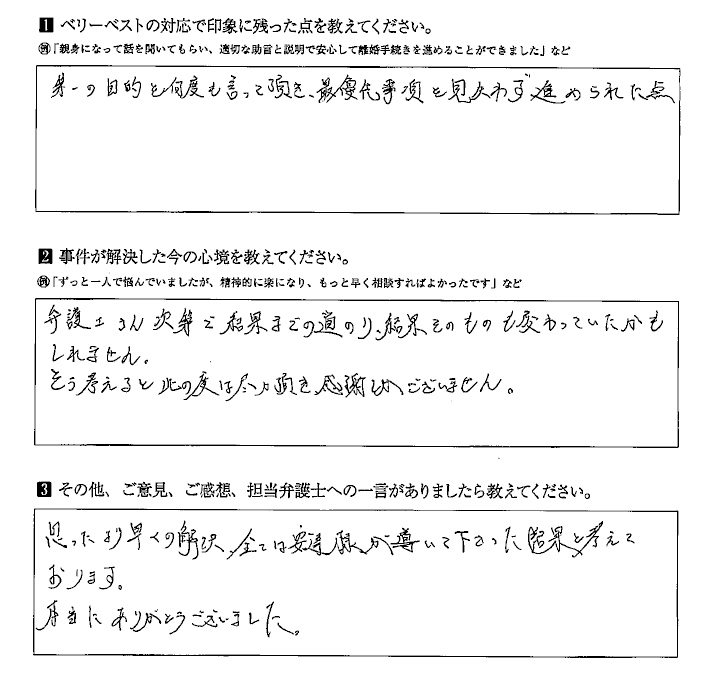 1 ベリーベストの対応で印象に残った点を教えてください。
例「親身になって話を聞いてもらい、適切な助言と説明で安心して離婚手続きを進めることができました」など
第一の目的を何度も言って頂き、最優先事項を見失わず進められた点
2 事件が解決した今の心境を教えてください。
例「ずっと一人で悩んでいましたが、精神的に楽になり、もっと早く相談すればよかったです」など
弁護士さん次第で結果までの道のり、結果そのものも変わっていたかも
しれません。
そう考えると此の度は尽力頂き感謝しかございません。
3 その他、ご意見、ご感想、担当弁護士への一言がありましたら教えてください。
思ったより早くの解決、全ては安達様が導いて下さった結果と考えて
おります。
本当にありがとうございました。